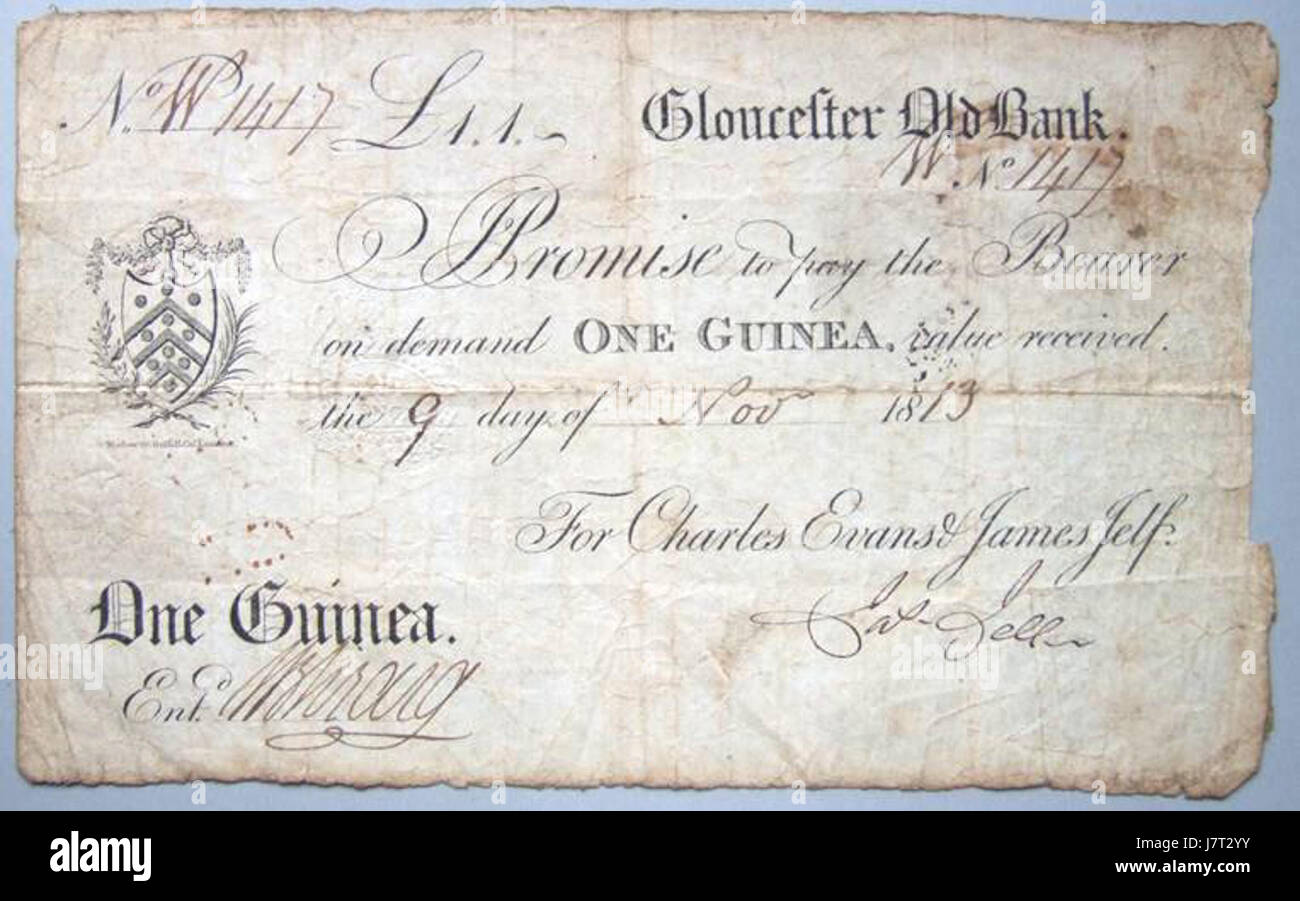 No. W 1417 £1.1.- Gloucester Old Bank.
W No. 1417
I Promise to pay the Bearer
on demand ONE GUINEA, value received.
the 9 day of Nov 1813
For Charles Evans & James Jelf.
One Guinea.
Ent.d
alamy
Image ID: J7T2YY
www.alamy.com